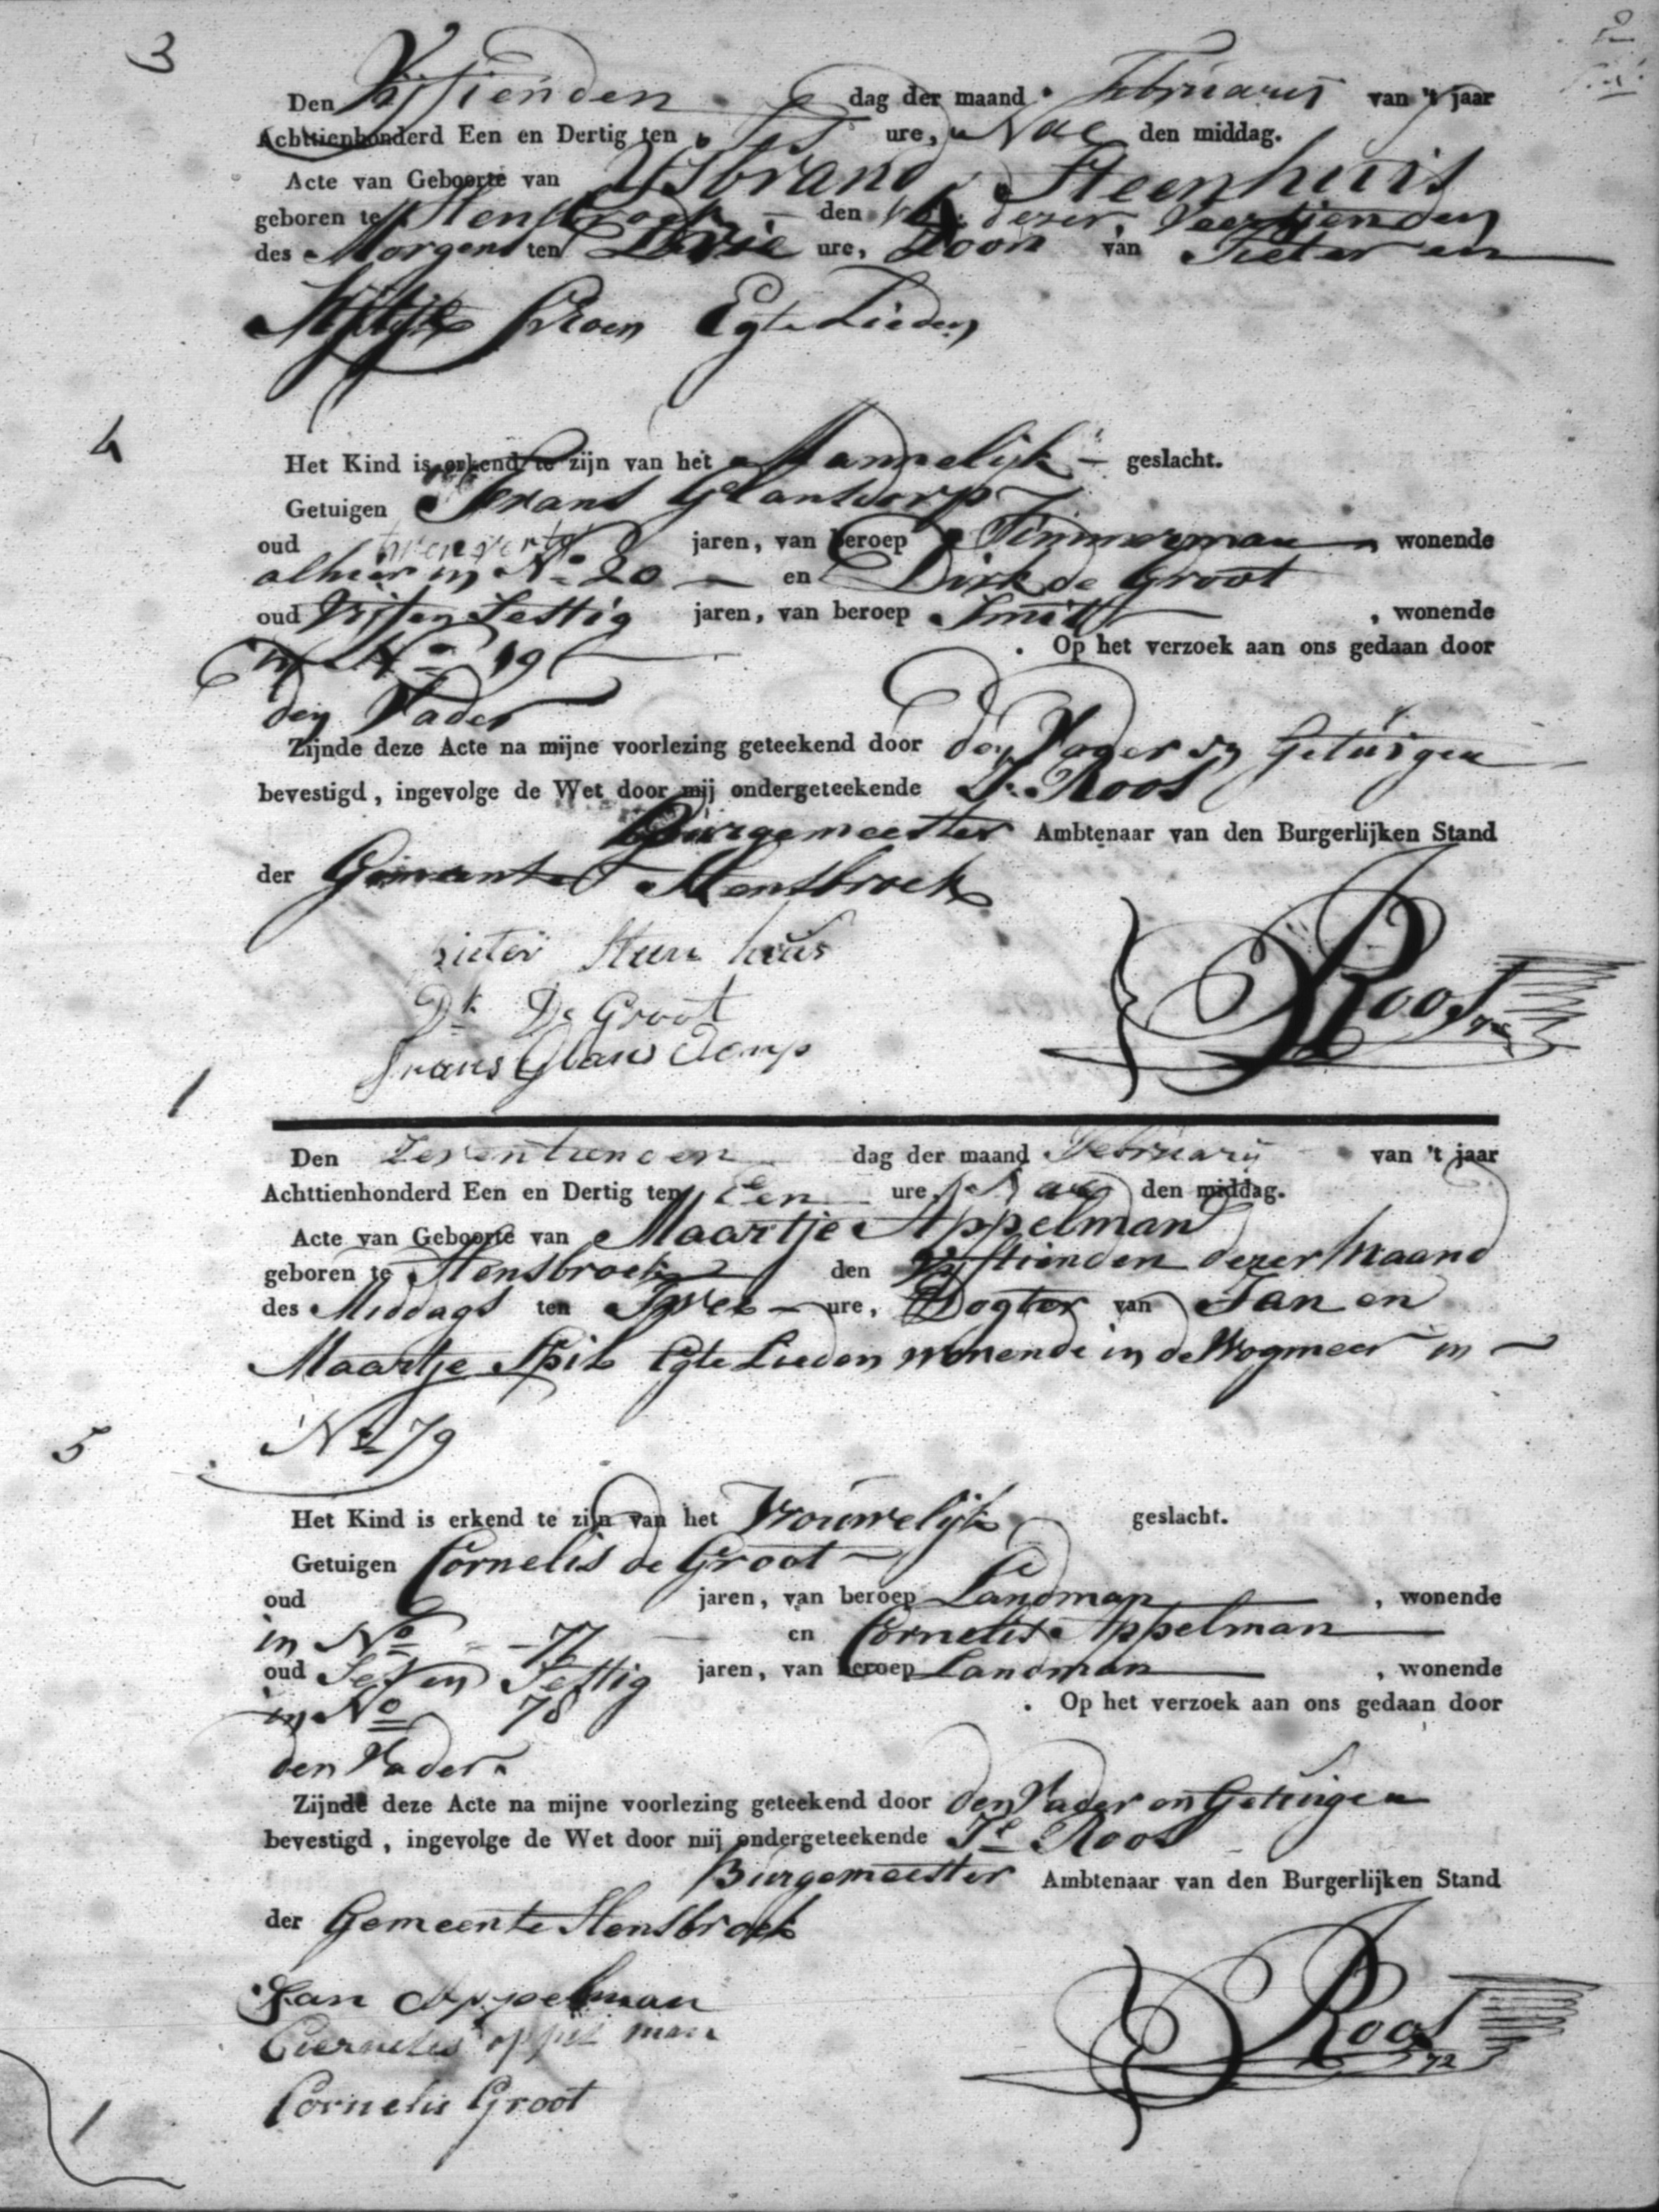 3
Den Vijftienden dag der maand Februarij van 't jaar
Achttienhonderd Een en Dertig ten ure, Nae den middag.
Acte van Geboorte van IJsbrand Steenhuis
geboren te Hensbroek den dezer, Veertienden
des Morgens ten Drie ure, Zoon van Pieter en
Egte Lieden
4
Het Kind is erkend te zijn van het Mannelijk geslacht.
Getuigen Frans Glandorp
oud jaren, van beroep Timmerman wonende
alhier in No 20 en Dirk de Groot
oud Vijf en Sestig jaren, van beroep Smit , wonende
in No 19 . Op het verzoek aan ons gedaan door
den Vader
Zijnde deze Acte na mijne voorlezing geteekend door den Vader en Getuigen
bevestigd, ingevolge de Wet door mij ondergeteekende Roos
Burgemeester Ambtenaar van den Burgerlijken Stand
der Gemeente Hensbroek
pieter Steen huis
Dk De Groot
Roos
frans Glandorp
1
Den Zeventienden dag der maand Februarij van 't jaar
Achttienhonderd Een en Dertig ten Een ure, Nae den middag.
Acte van Geboorte van Maartje Appelman
geboren te Hensbroek den Vijftienden dezer Maand
des Middags ten Twee ure, Dogter van Jan en
Maartje Spil Egte Lieden wonende in de Wogmeer in
No 79
5
Het Kind is erkend te zijn van het Vrouwelijk geslacht.
Getuigen Cornelis de Groot
oud jaren, van beroep Landman , wonende
in No 77 en Cornelis Appelman
oud Ses en Sestig jaren, van beroep Landman , wonende
in No 78 . Op het verzoek aan ons gedaan door
den Vader
Zijnde deze Acte na mijne voorlezing geteekend door den Vader en Getuigen
bevestigd, ingevolge de Wet door mij ondergeteekende Roos
Burgemeester Ambtenaar van den Burgerlijken Stand
der Gemeente Hensbroek
Jan Appelman
Roos
Cornelis Groot
1